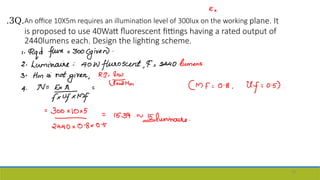 E₀
.3Q.An office 10X5m requires an illumination level of 300lux on the working plane. It
is proposed to use 40Watt fluorescent fittings having a rated output of
2440lumens each. Design the lighting scheme.
1. Rqd flux = 300 (given)
2. Luminaire : 40 W fluroscent, F = 2440 lumens
3. Hm is not given, RI = L×W
4. N = E×A / F×Uf×Mf = (Mf = 0.8, Uf = 0.5)
= 300×10×5 / 2440×0.8×0.5 = 15.39 ≈ 15 luminaire.